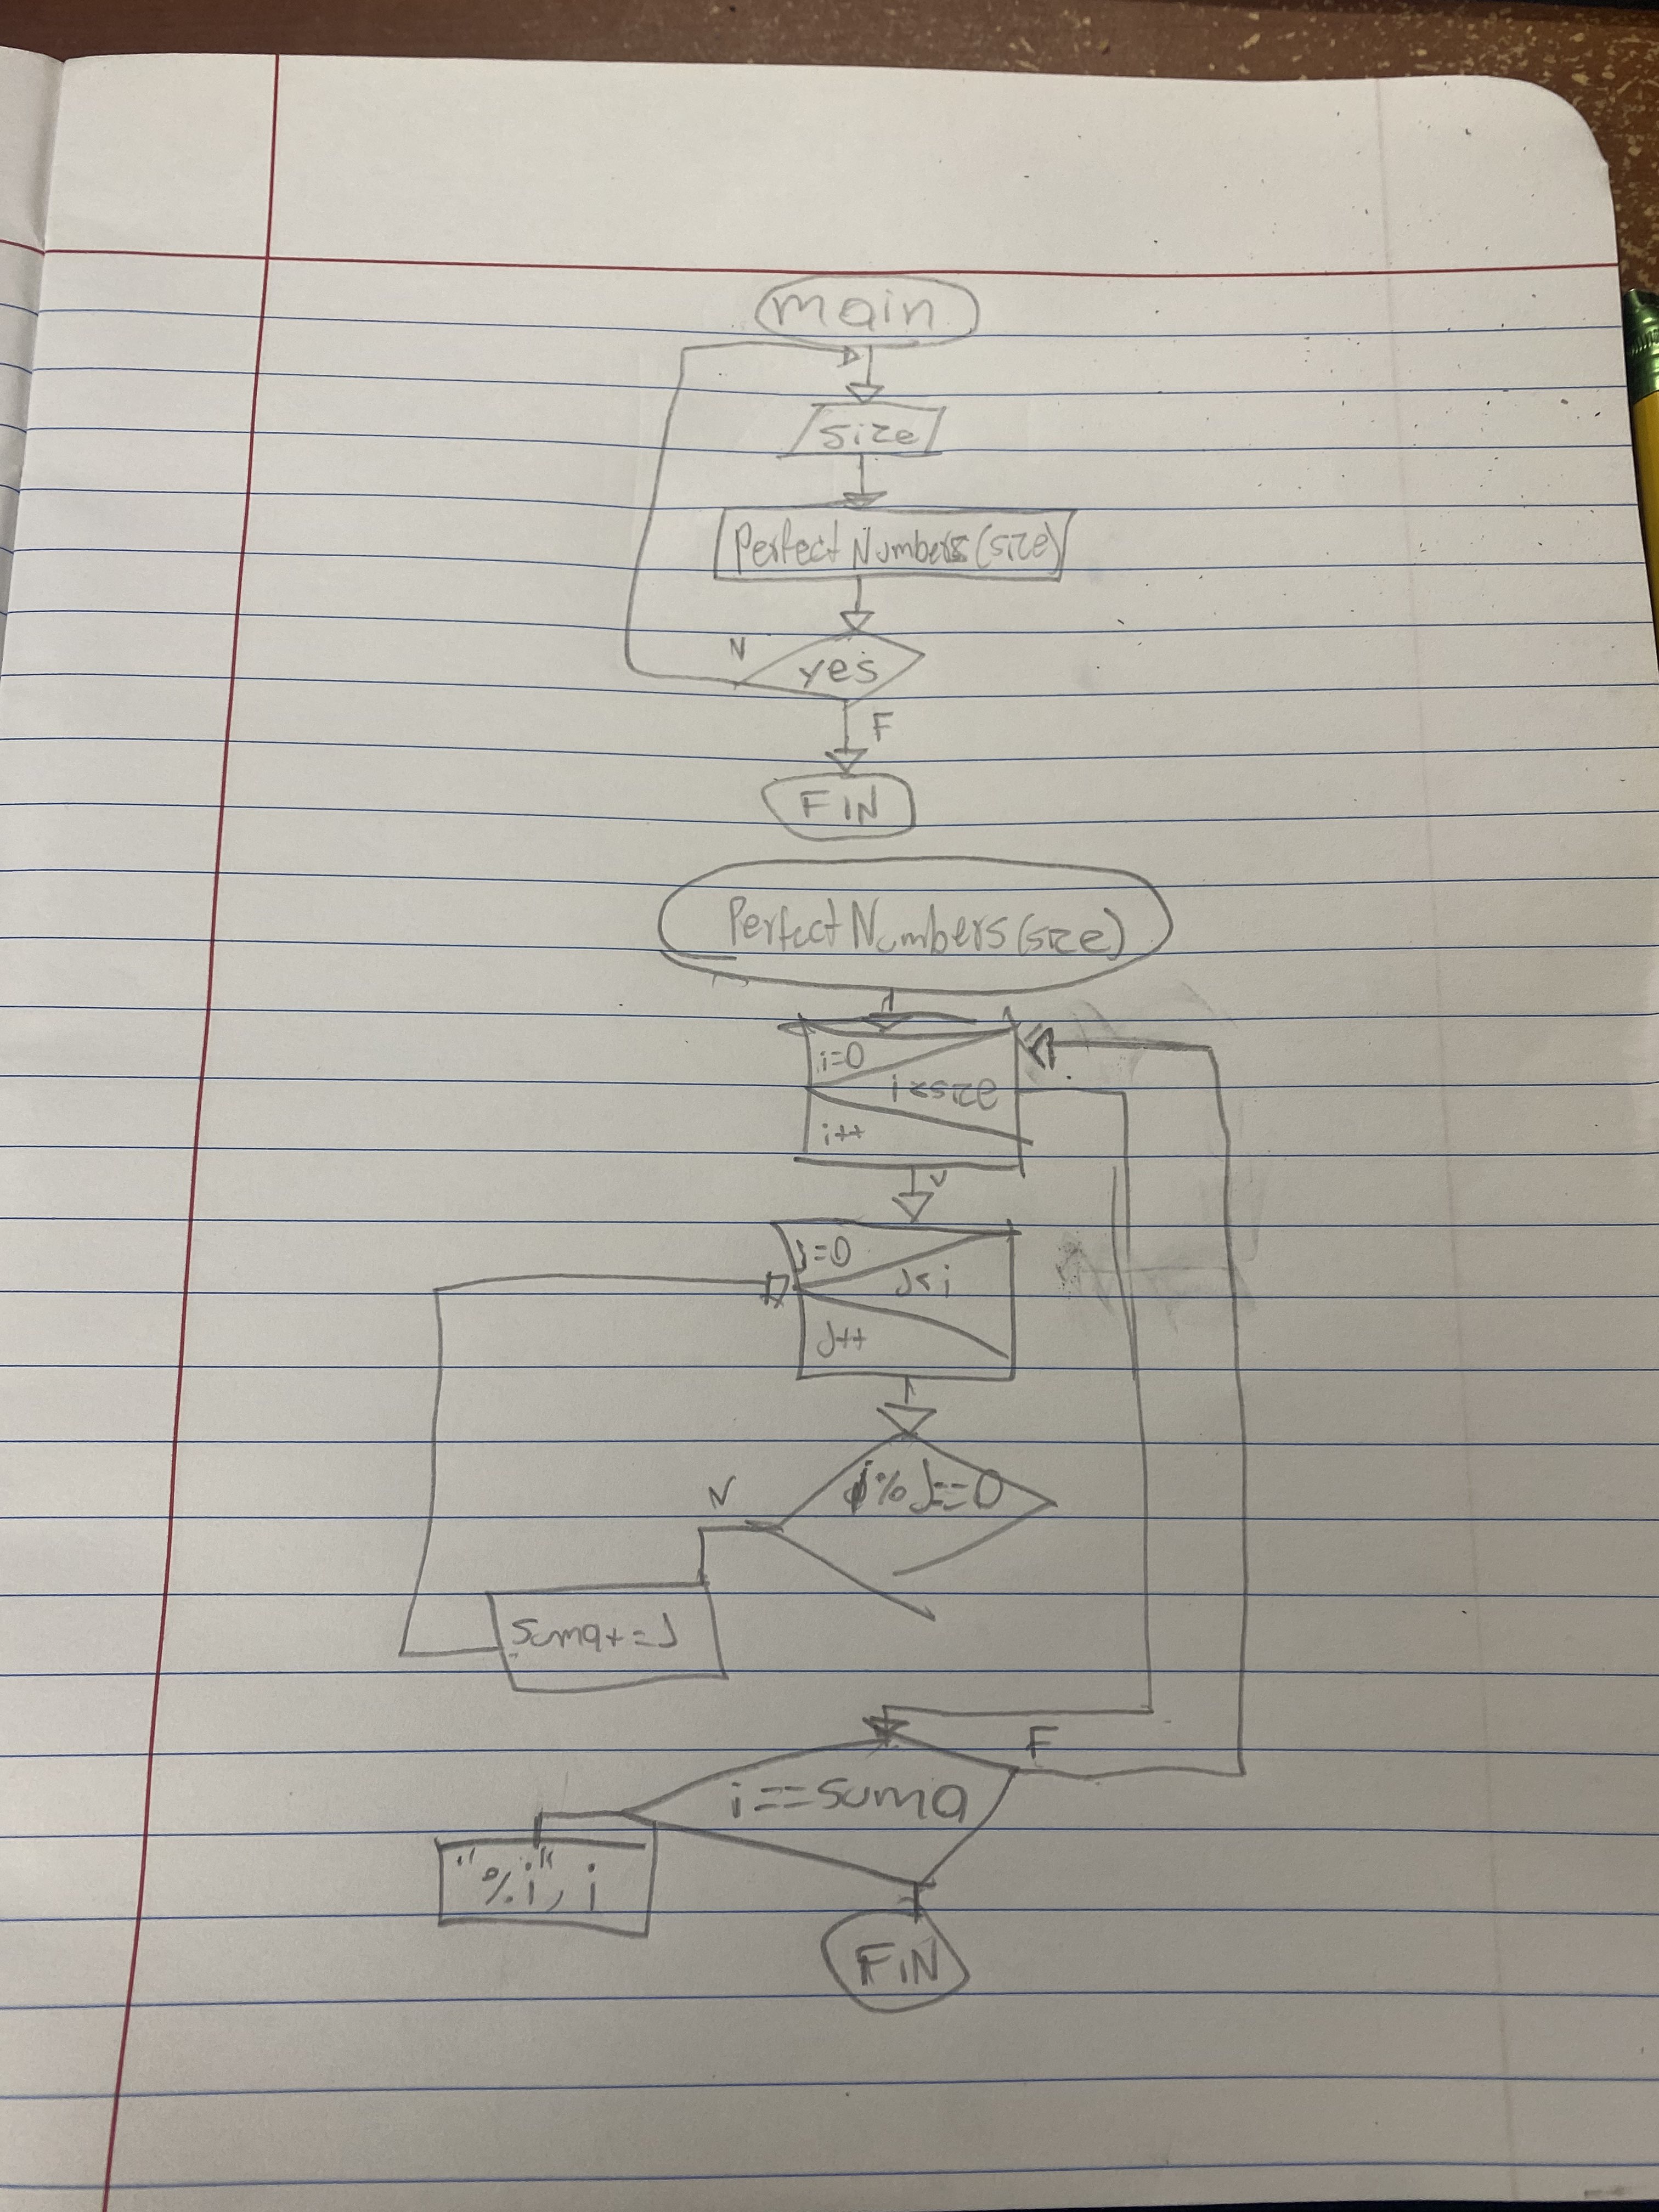 main
size
Perfect Numbers(size)
V
yes
F
FIN
Perfect Numbers(size)
i=0
i<size
i++
V
j=0
J<i
J++
i%J==0
V
suma+=J
F
i==suma
"%i", i
FiN